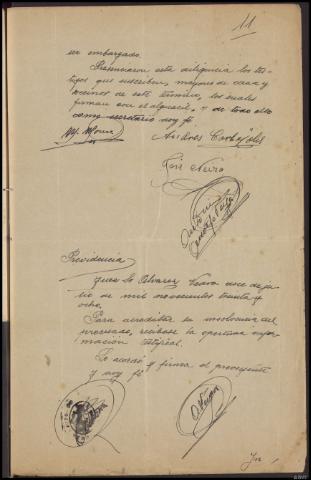 11
ser embargado.
Presenciaron esta diligencia los tes-
tigos que suscriben, mayores de edad y
vecinos de este término, los cuales
firman con el alguacil, y de todo ello
como secretario doy fé.
Andres
José Neira
Providencia
Juez Sr. Alvarez doce de ju-
lio de mil novecientos treinta y
ocho.
Para acreditar la insolvencia del
procesado, recíbase la oportuna infor-
mación testifical.
Lo acordó y firma el proveyente
y doy fé.